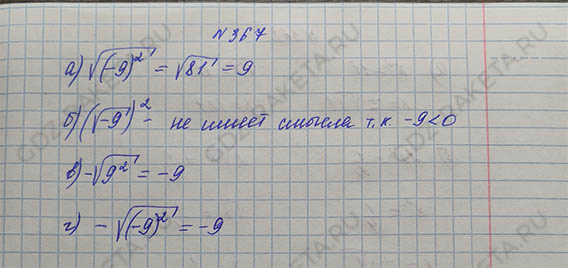 №367
а) √(-9)² = √81 = 9
б) (√-9)² - не имеет смысла т.к. -9<0
в) -√9² = -9
г) - √(-9)² = -9
GDZ-RAKETA.RU